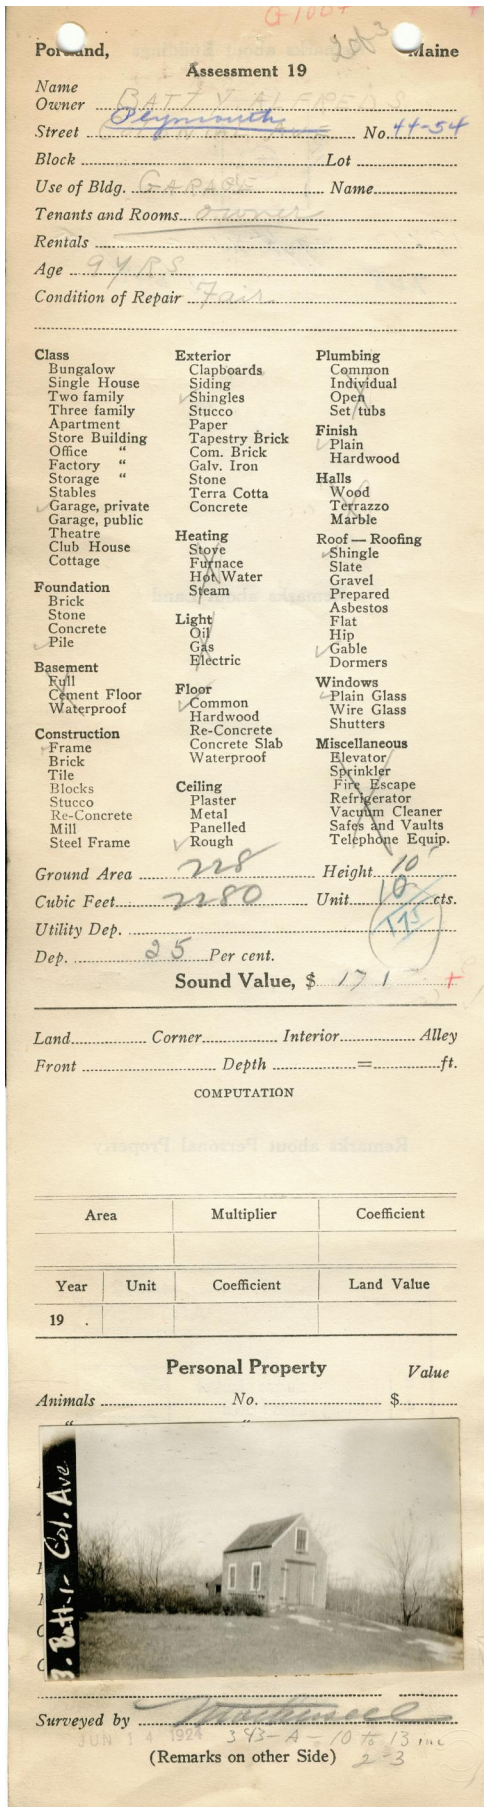 G 100 +
2 of 3
Portland, Maine
Assessment 19
Name
Owner BATTY ALFRED S
Street Plymouth No. 44-54
Block Lot
Use of Bldg. GARAGE Name
Tenants and Rooms owner
Rentals
Age 9 YRS
Condition of Repair Fair
Class
Bungalow
Single House
Two family
Three family
Apartment
Store Building
Office "
Factory "
Storage "
Stables
Garage, private
Garage, public
Theatre
Club House
Cottage
Foundation
Brick
Stone
Concrete
Pile
Basement
Full
Cement Floor
Waterproof
Construction
Frame
Brick
Tile
Blocks
Stucco
Re-Concrete
Mill
Steel Frame
Exterior
Clapboards
Siding
Shingles
Stucco
Paper
Tapestry Brick
Com. Brick
Galv. Iron
Stone
Terra Cotta
Concrete
Heating
Stove
Furnace
Hot Water
Steam
Light
Oil
Gas
Electric
Floor
Common
Hardwood
Re-Concrete
Concrete Slab
Waterproof
Ceiling
Plaster
Metal
Panelled
Rough
Plumbing
Common
Individual
Open
Set tubs
Finish
Plain
Hardwood
Halls
Wood
Terrazzo
Marble
Roof — Roofing
Shingle
Slate
Gravel
Prepared
Asbestos
Flat
Hip
Gable
Dormers
Windows
Plain Glass
Wire Glass
Shutters
Miscellaneous
Elevator
Sprinkler
Fire Escape
Refrigerator
Vacuum Cleaner
Safes and Vaults
Telephone Equip.
Ground Area 228 Height 10'
Cubic Feet 2280 Unit 10 cts.
175
Utility Dep.
Dep. 25 Per cent.
Sound Value, $ 171 +
Land Corner Interior Alley
Front Depth = ft.
COMPUTATION
Remarks about Personal Property
Area Multiplier Coefficient
Year Unit Coefficient Land Value
19 .
Personal Property Value
Animals No. $
" "
3. Batty- Col. Ave
Surveyed by
JUN 14 1924 343-A-10 to 13 inc
(Remarks on other Side) 2-3